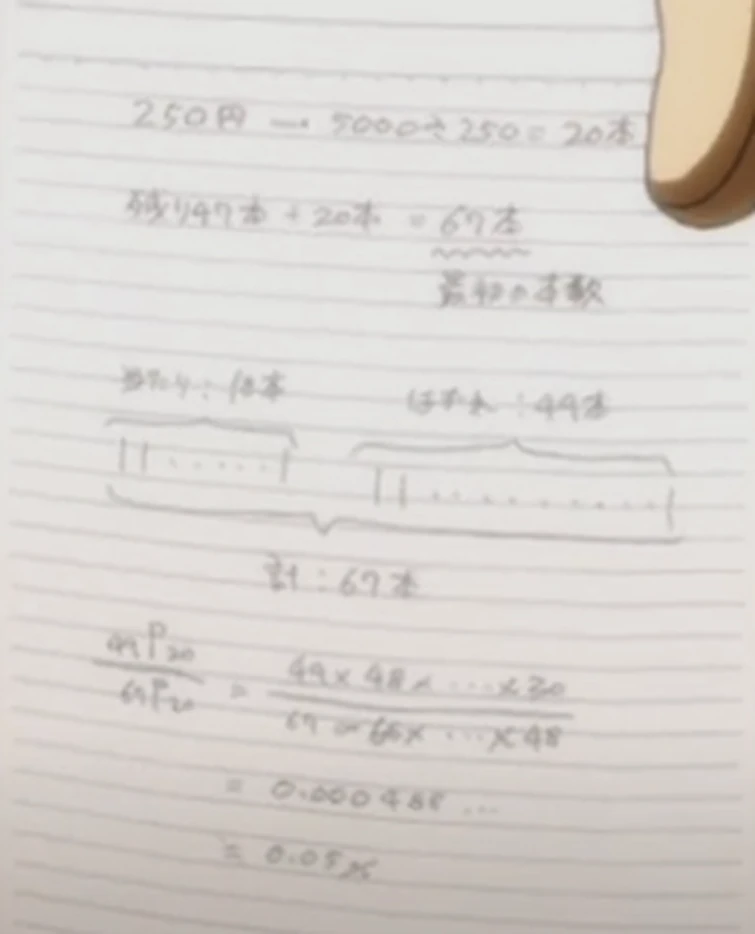 250円 → 5000÷250=20本
残り47本+20本=67本
最初の本数
当たり:18本 はずれ:49本
計:67本
49P20/67P20 = 49×48×…×30/67×66×…×48
=0.000488…
=0.05%